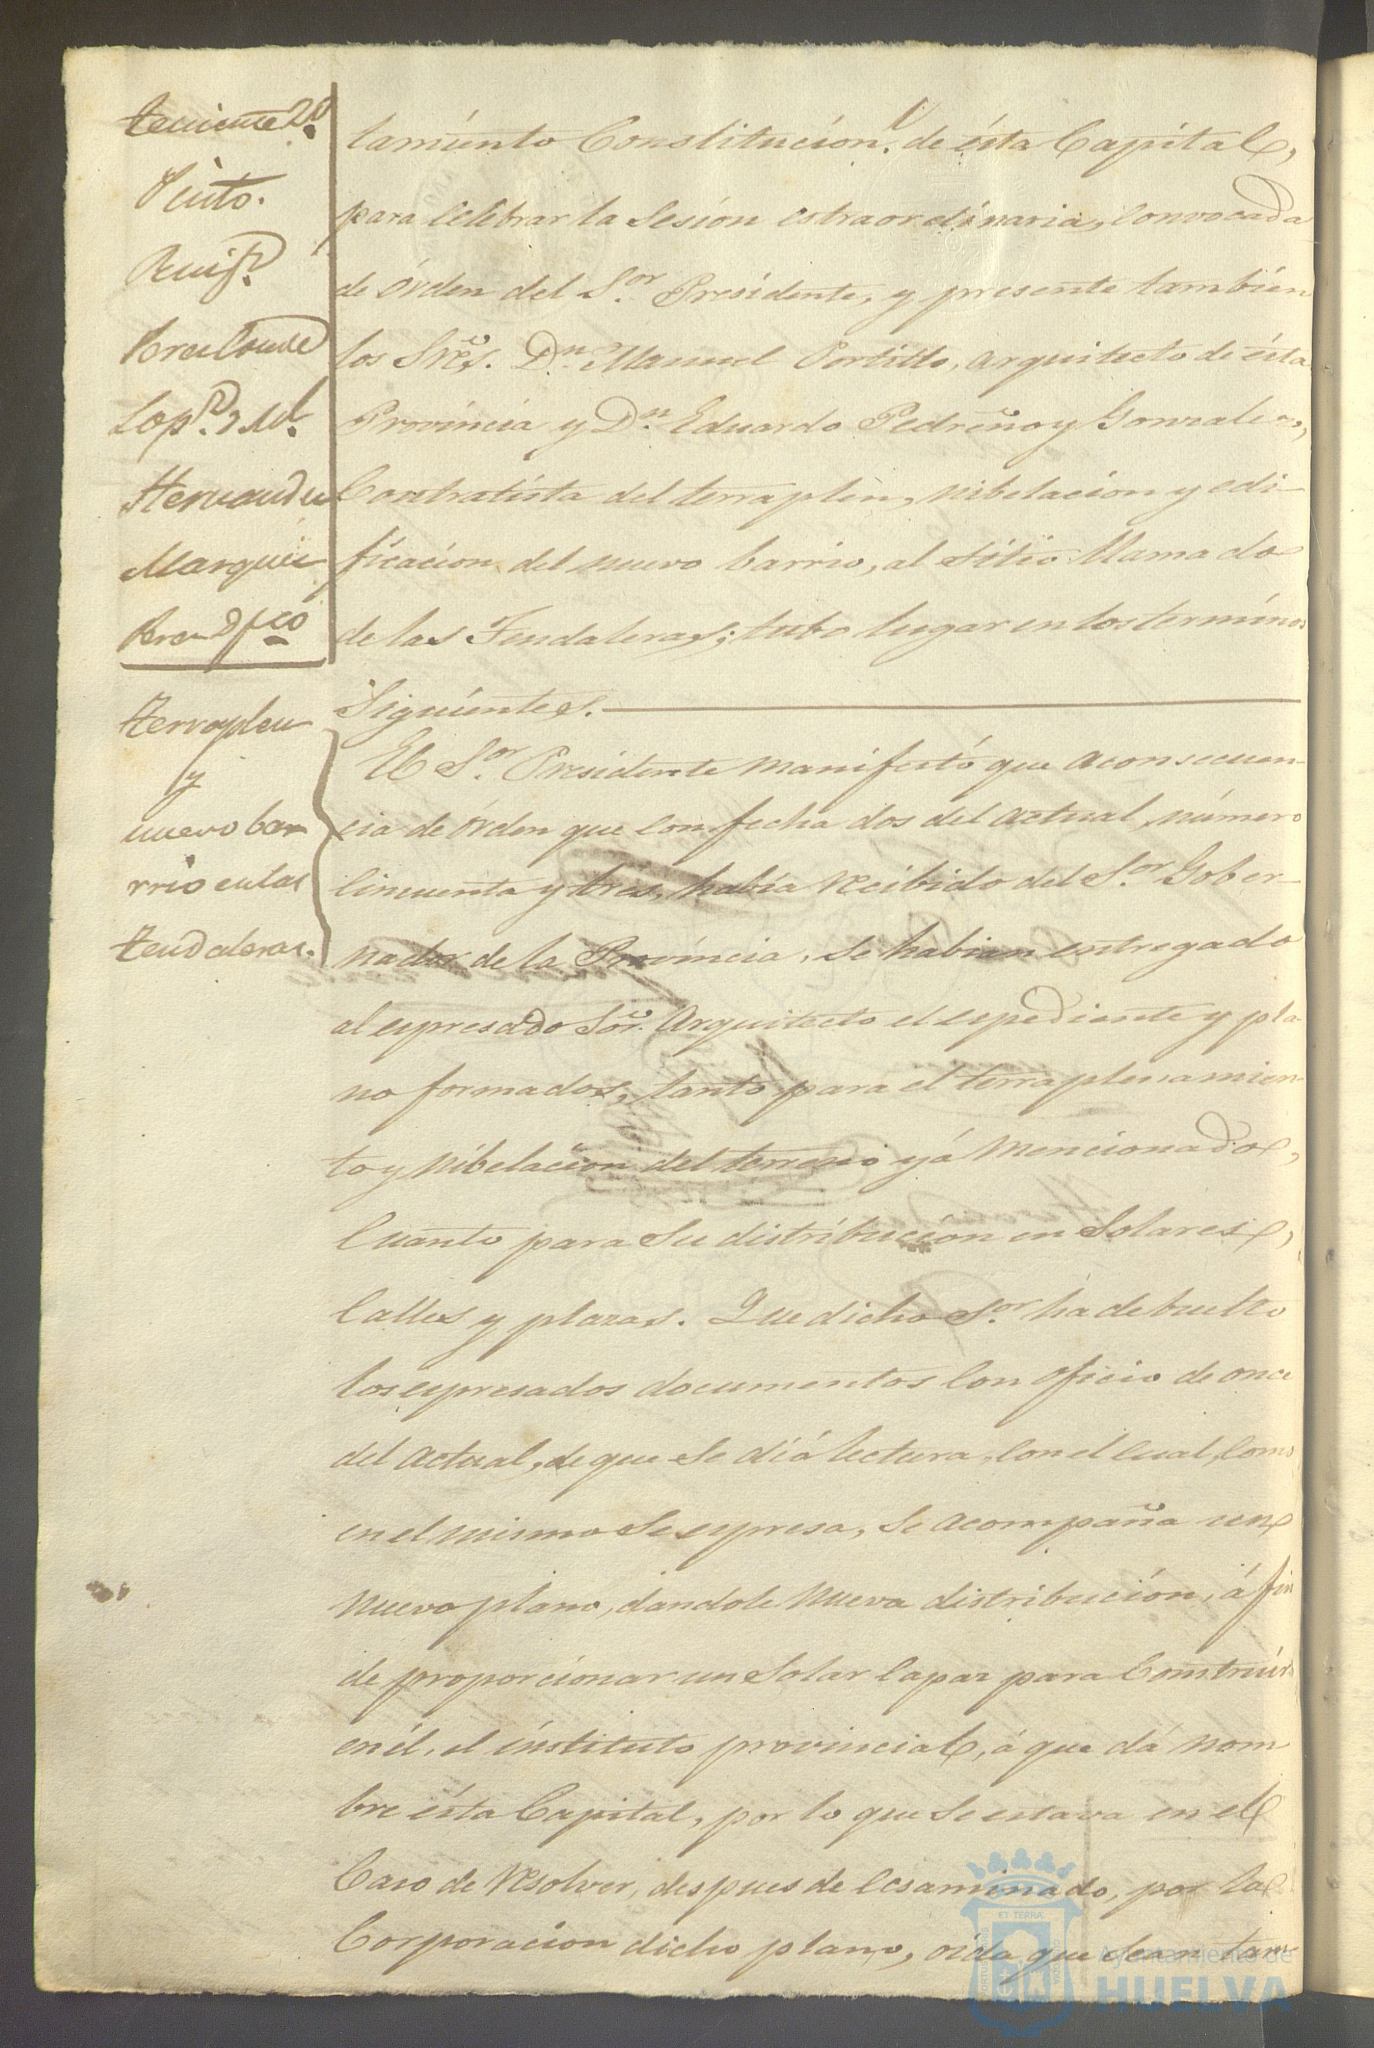 teniente 2º
Pinto.
Ruiz
Perez
Lopz y Ml.
Hernandz
Marquez
Perez Dn fco
tamiento Constitucionl. de ésta Capital,
para celebrar la Sesion estraordinaria, convocada
de órden del Sor. Presidente, y presente tambien
los Sres. Dn. Manuel Portillo, arquitecto de ésta
Provincia y Dn. Eduardo Pedreño y Gonzalez,
Contratista del terraplen, nibelacion y edi-
ficacion del nuevo barrio, al sitio llamado
de las Tendaleras; tubo lugar en los términos
siguientes.
terraplen
y
nuevo bar
rrio en las
tendaleras.
El Sor. Presidente manifestó que a consecuen-
cia de órden que con fecha dos del actual, número
cincuenta y tres, habia recibido del Sor. Gober-
nador de la Provincia, se habian entregado
al espresado Sor. Arquitecto el espediente y pla-
no formados, tanto para el terraplenamien-
to y nibelacion del terreno yá mencionado,
cuanto para su distribucion en Solares,
Calles y plazas. Que dicho Sor. há debuelto
los espresados documentos con oficio de once
del actual, de que se dió lectura, con el cual, como
en el mismo se espresa, se acompaña un
nuevo plano, dandole nueva distribucion, á fin
de proporcionar un solar capaz para construir
en él, el instituto provincial, á que dá nom-
bre ésta Capital, por lo que se estava en el
caso de resolver, despues de ecsaminado, por la
Corporacion dicho plano, oida que sean tam-
ET TERRA
Ayuntamiento de
HUELVA